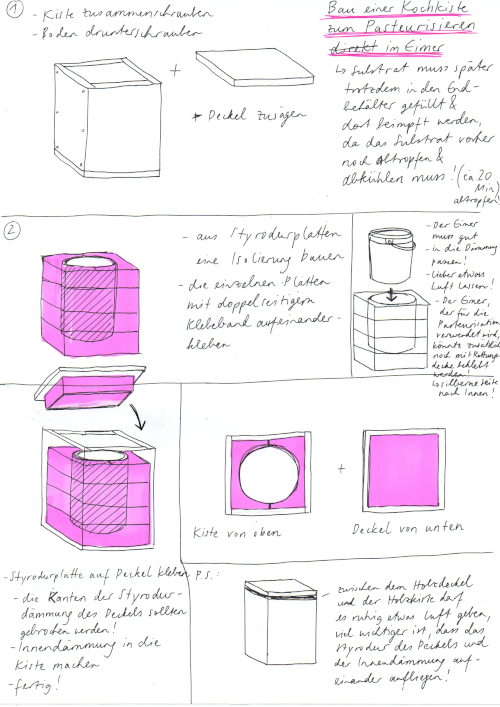 1
- Kiste zusammenschrauben
- Boden drunterschrauben
+
+ Deckel zusägen
Bau einer Kochkiste
zum Pasteurisieren
direkt im Eimer
↳ Substrat muss später
trotzdem in den End-
behälter gefüllt &
dort beimpft werden,
da das Substrat vorher
noch abtropfen &
abkühlen muss! (ca. 20
Min)
abtropfen!
2
- aus Styrodurplatten
eine Isolierung bauen
- die einzelnen Platten
mit doppelseitigem
Klebeband aufeinander-
kleben
- Der Eimer
muss gut
- in die Dämmung
passen!
- Lieber etwas
Luft lassen!
- Der Eimer,
der für die
Pasteurisation
verwendet wird,
könnte zusätzlich
noch mit Rettungs-
decke beklebt
werden!
↳ silberne Seite
nach Innen!
+
Kiste von oben
Deckel von unten
- Styrodurplatte auf Deckel kleben
- die Kanten der Styrodur-
dämmung des Deckels sollten
gebrochen werden!
- Innendämmung in die
Kiste machen
- fertig!
P.S.:
zwischen dem Holzdeckel
und der Holzkiste darf
es ruhig etwas Luft geben,
viel wichtiger ist, dass das
Styrodur des Deckels und
der Innendämmung auf-
einander aufliegen!